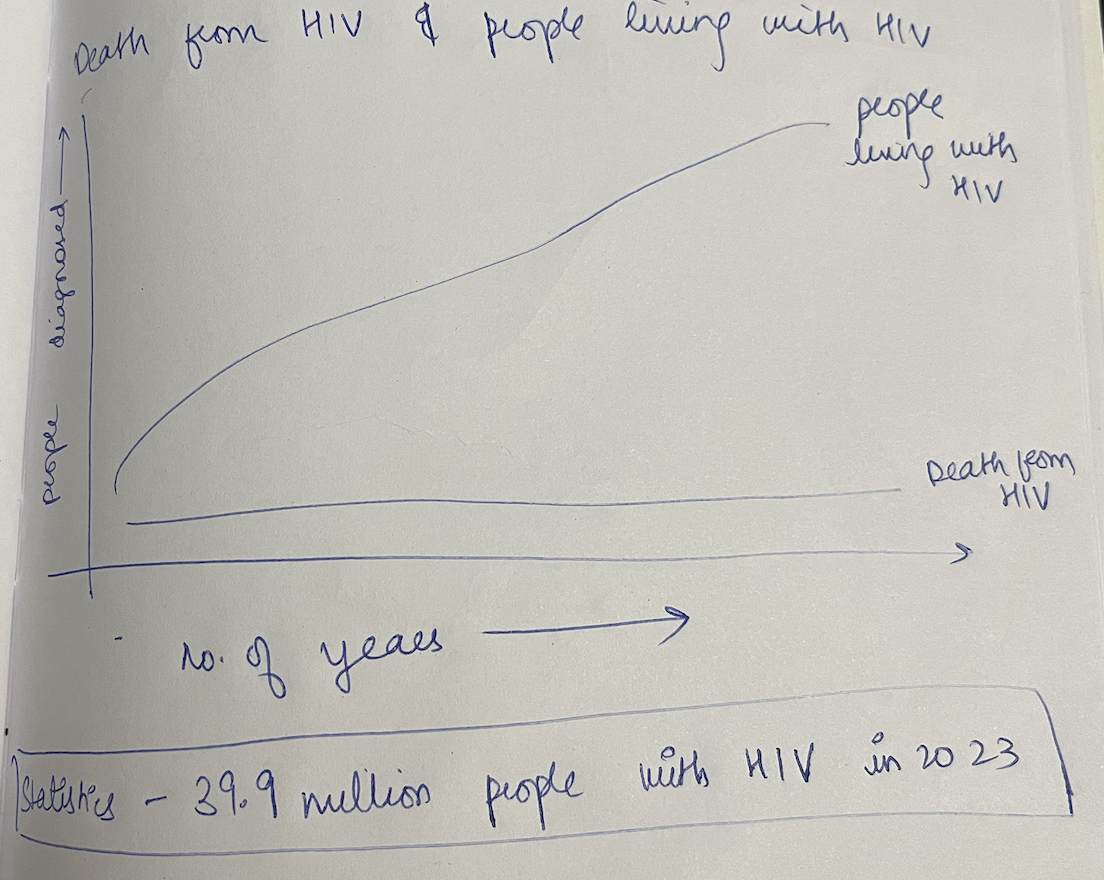 Death from HIV & people living with HIV
people diagnosed
people
living with
HIV
Death from
HIV
no. of years
Statistics - 39.9 million people with HIV in 2023